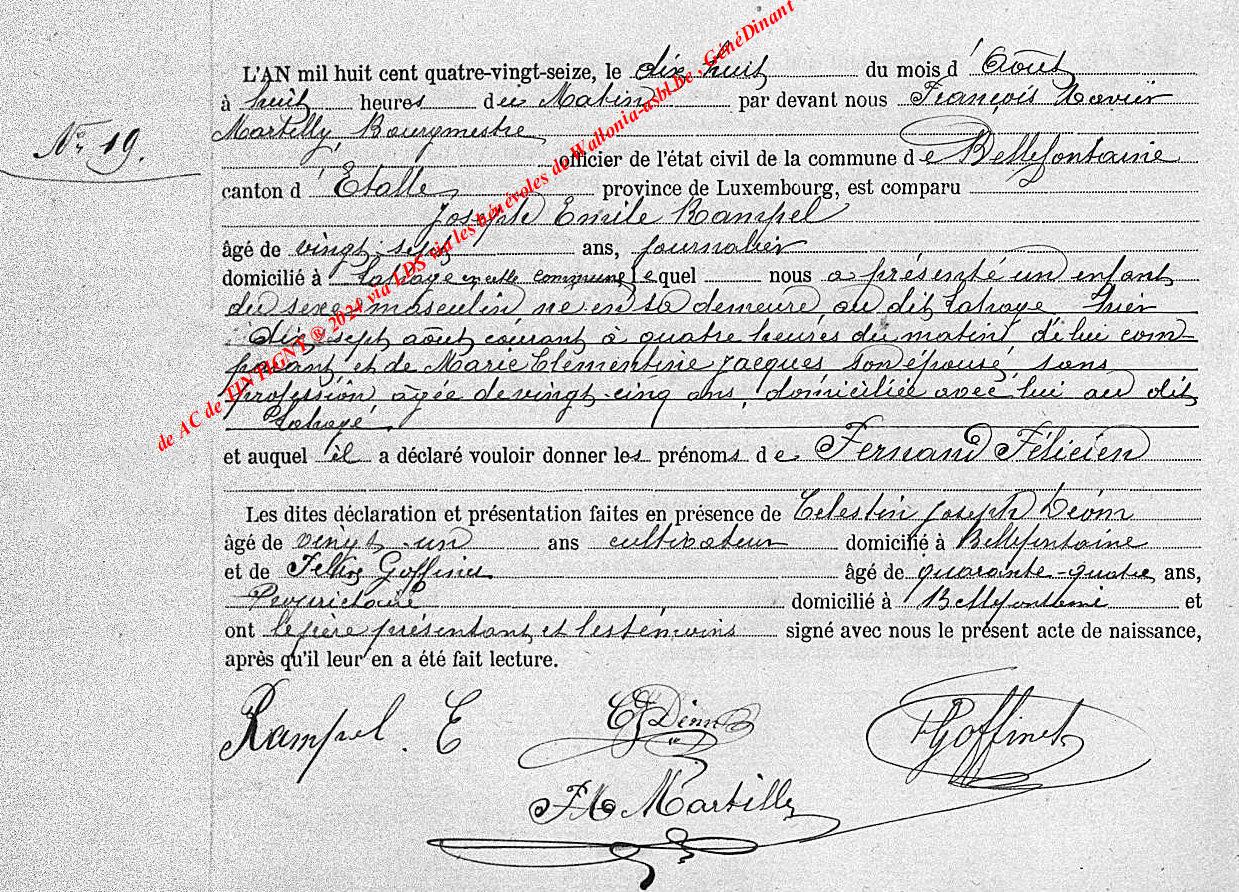 L'AN mil huit cent quatre-vingt-seize, le dix huit du mois d'Août
à huit heures du Matin par devant nous François Xavier
Nº 19.
Martilly, Bourgmestre
officier de l'état civil de la commune de Bellefontaine
canton d'Etalle, province de Luxembourg, est comparu
Joseph Emile Rampel
âgé de vingt-sept ans, journalier
domicilié à Lahage en cette commune lequel nous a présenté un enfant
du sexe masculin, né en sa demeure, au dit Lahage hier
dix sept août courant à quatre heures du matin, de lui com-
parant et de Marie Clémentine Jacques son épouse, sans
profession, agée de vingt-cinq ans, domiciliée avec lui au dit
Lahage.
et auquel il a déclaré vouloir donner les prénoms de Fernand Félicien
Les dites déclaration et présentation faites en présence de Célestin Joseph Déom
âgé de vingt-un ans cultivateur domicilié à Bellefontaine
et de Félix Goffinet âgé de quarante-quatre ans,
Propriétaire domicilié à Bellefontaine et
ont le père présentant et les témoins signé avec nous le présent acte de naissance,
après qu'il leur en a été fait lecture.
Rampel. E
CJ Déom
F Goffinet
FX Martilly
de AC de TINTIGNY ® 2024 via LDS via les bénévoles de Wallonia-asbl.be , GénéDinant